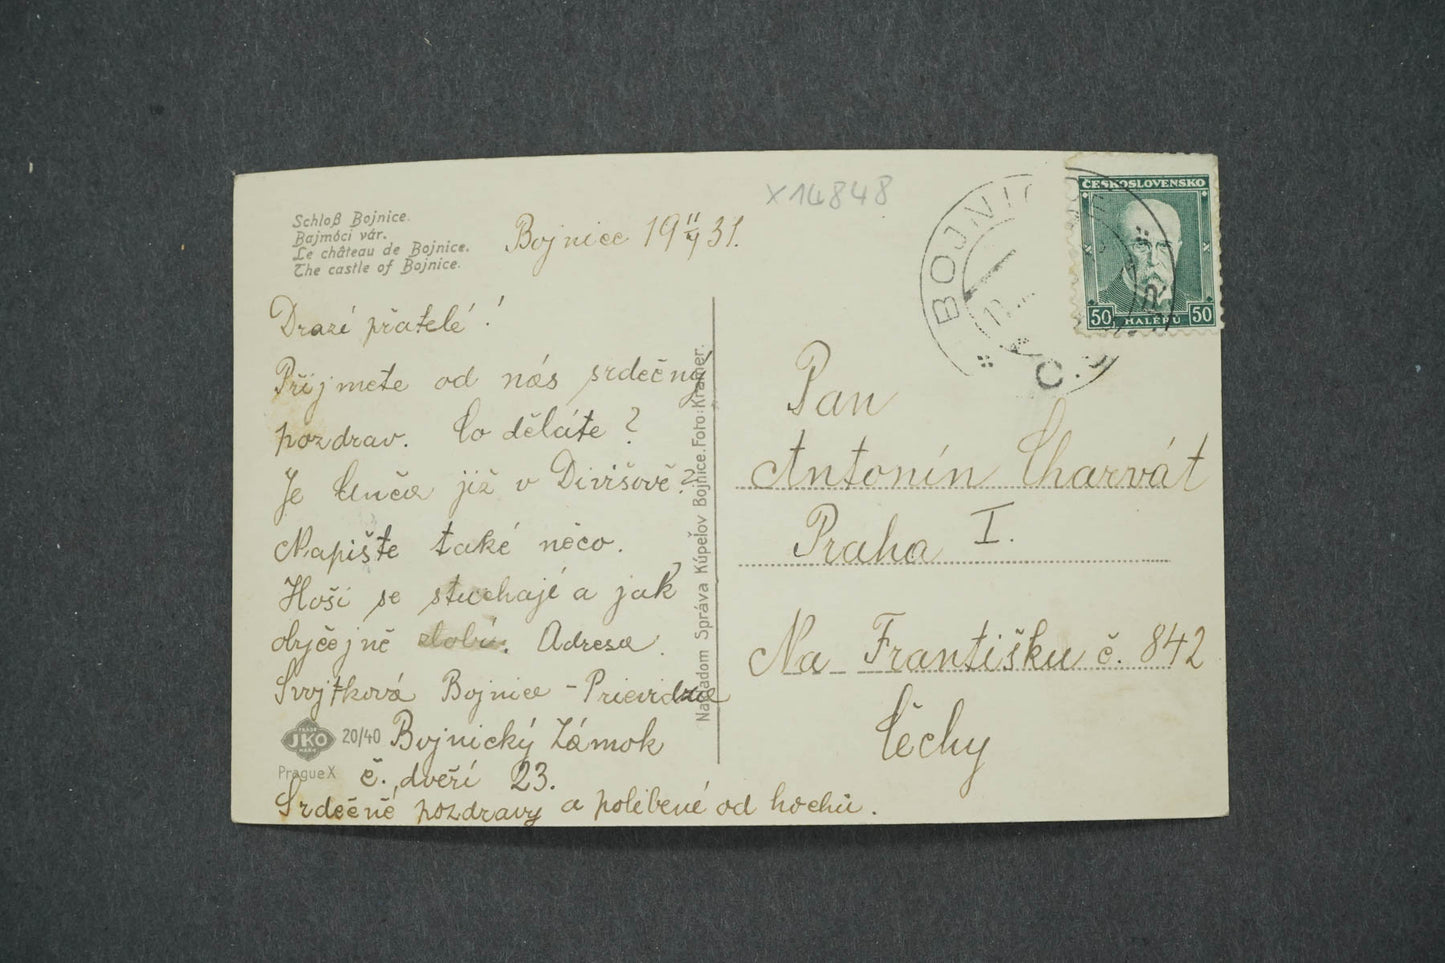 Schloß Bojnice.
Bajmóci vár.
Le château de Bojnice.
The castle of Bojnice.
Bojnice 19 11/9 31.
x14848
Drazí přatelé!
Přijmete od nás srdečný
pozdrav. Co děláte?
Je Anča již v Divišově?
Napište také něco.
Hoši se a jak
obyčejně zlobí. Adresa.
Bojnice - Prievidza
Bojnický Zámok
č. dveří 23.
Srdečné pozdravy a políbené od hochů.
TRADE
JKO
MARK
20/40
Prague X
Nákladom Správa Kúpeľov Bojnice. Foto: Kramer.
BOJNIC
Č.S
ČESKOSLOVENSKO
50 HALÉŘŮ 50
Pan
Antonín Charvát
Praha I.
Na Františku č. 842
Čéchy